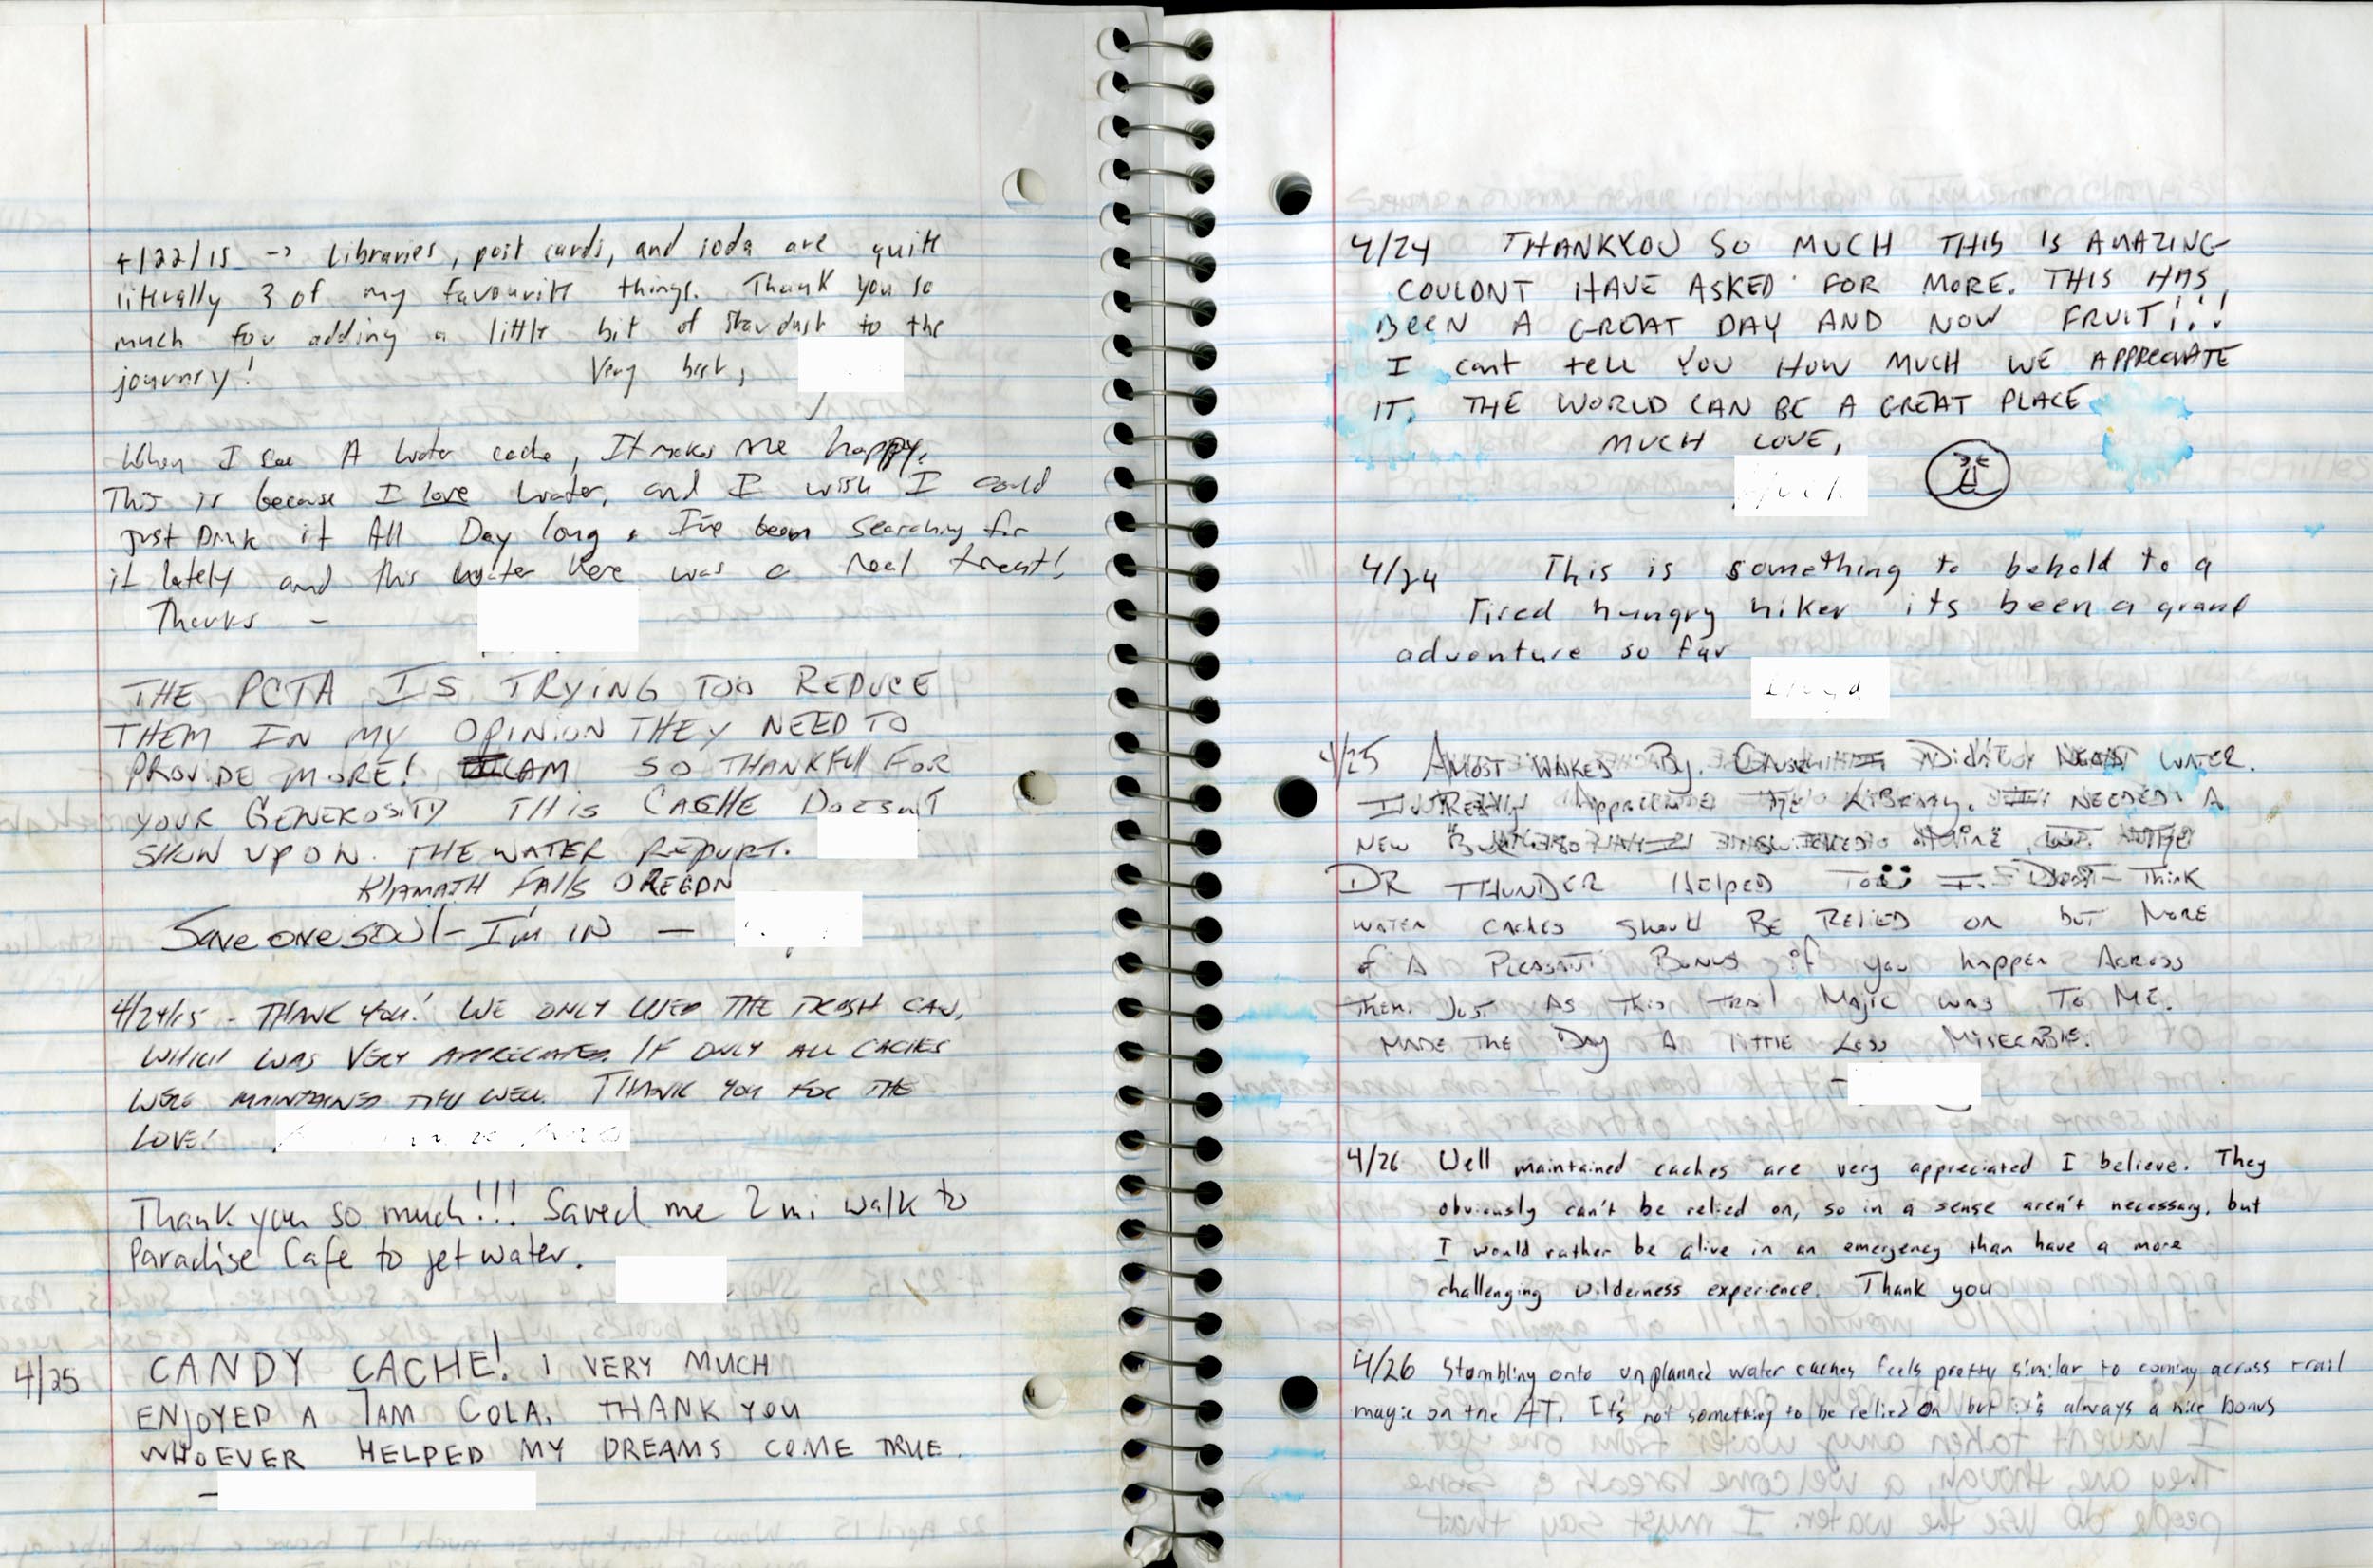 4/22/15 -> Libraries, post cards, and soda are quite
literally 3 of my favourite things. Thank you so
much for adding a little bit of stardust to the
journey! Very best,
When I see A water cache, It makes me happy.
This is because I love water, and I wish I could
just Drink it All Day long. I've been searching for
it lately and this water here was a real treat!
Thanks -
THE PCTA IS TRYING TOO REDUCE
THEM IN MY OPINION THEY NEED TO
PROVIDE MORE! AM SO THANKFUll FOR
YOUR GENEROSITY THIS CACHE DOESN'T
SHOW UP ON THE WATER REPORT.
KlAMATH FAlls OREGON
Save one soul - I'm IN -
4/24/15 - THANK YOU! WE ONLY USED THE TRASH CAN,
WHICH WAS VERY APPRECIATED. IF ONLY ALL CACHES
WERE MAINTAINED THIS WELL. THANK YOU FOR THE
LOVE!
Thank you so much!!! Saved me 2 mi walk to
Paradise Cafe to get water.
4/25 CANDY CACHE! I VERY MUCH
ENJOYED A JAM COLA. THANK YOU
WHOEVER HELPED MY DREAMS COME TRUE.
-
4/24 THANKYOU SO MUCH THIS IS AMAZING
COULDNT HAVE ASKED FOR MORE. THIS HAS
BEEN A GREAT DAY AND NOW FRUIT!!!
I cant tell YOU HOW MUCH WE APPRECIATE
IT. THE WORLD CAN BE A GREAT PLACE
MUCH LOVE,
4/24 This is something to behold to a
Tired hungry hiker its been a grand
adventure so far
4/25 Almost Walked By. Didn't Need WATER.
Really Appreciate The Library. NEEDED A
NEW
DR THUNDER Helped Too I Don't Think
WATER CACHES Should BE RELIED ON but MORE
of A PLEASANT BONUS if you happen Across
Them. Just As This Trail Majic was To ME.
MADE THE DAY A little Less MISERABLE.
-
4/26 Well maintained caches are very appreciated I believe. They
obviously can't be relied on, so in a sense aren't necessary, but
I would rather be alive in an emergency than have a more
challenging wilderness experience. Thank you
4/26 Stumbling onto unplanned water caches feels pretty similar to coming across trail
magic on the AT. It's not something to be relied on but it's always a nice bonus